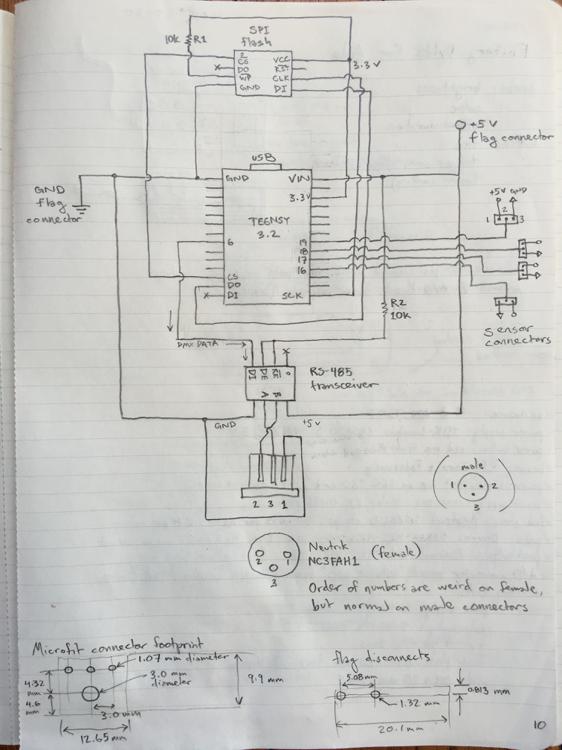 SPI
flash
10k R1
2
CS
DO
WP
GND
VCC
RST
CLK
DI
3.3V
+5V
flag connector
USB
GND
flag
connector
GND
VIN
3.3V
TEENSY
3.2
6
19
18
17
16
CS
DO
DI
SCK
+5V GND
1 2 3
sensor
connectors
R2
10K
DMX DATA
DI DE RE
A B
RS-485
transceiver
GND
+5V
2 3 1
male
1 2
3
2 1
3
Neutrik
NC3FAH1
(female)
Order of numbers are weird on female,
but normal on male connectors
Microfit connector footprint
1.07 mm diameter
3.0 mm
diameter
4.32
mm
4.6
mm
3.0 mm
12.65 mm
9.9 mm
flag disconnects
5.08mm
1.32 mm
0.813 mm
20.1mm
10